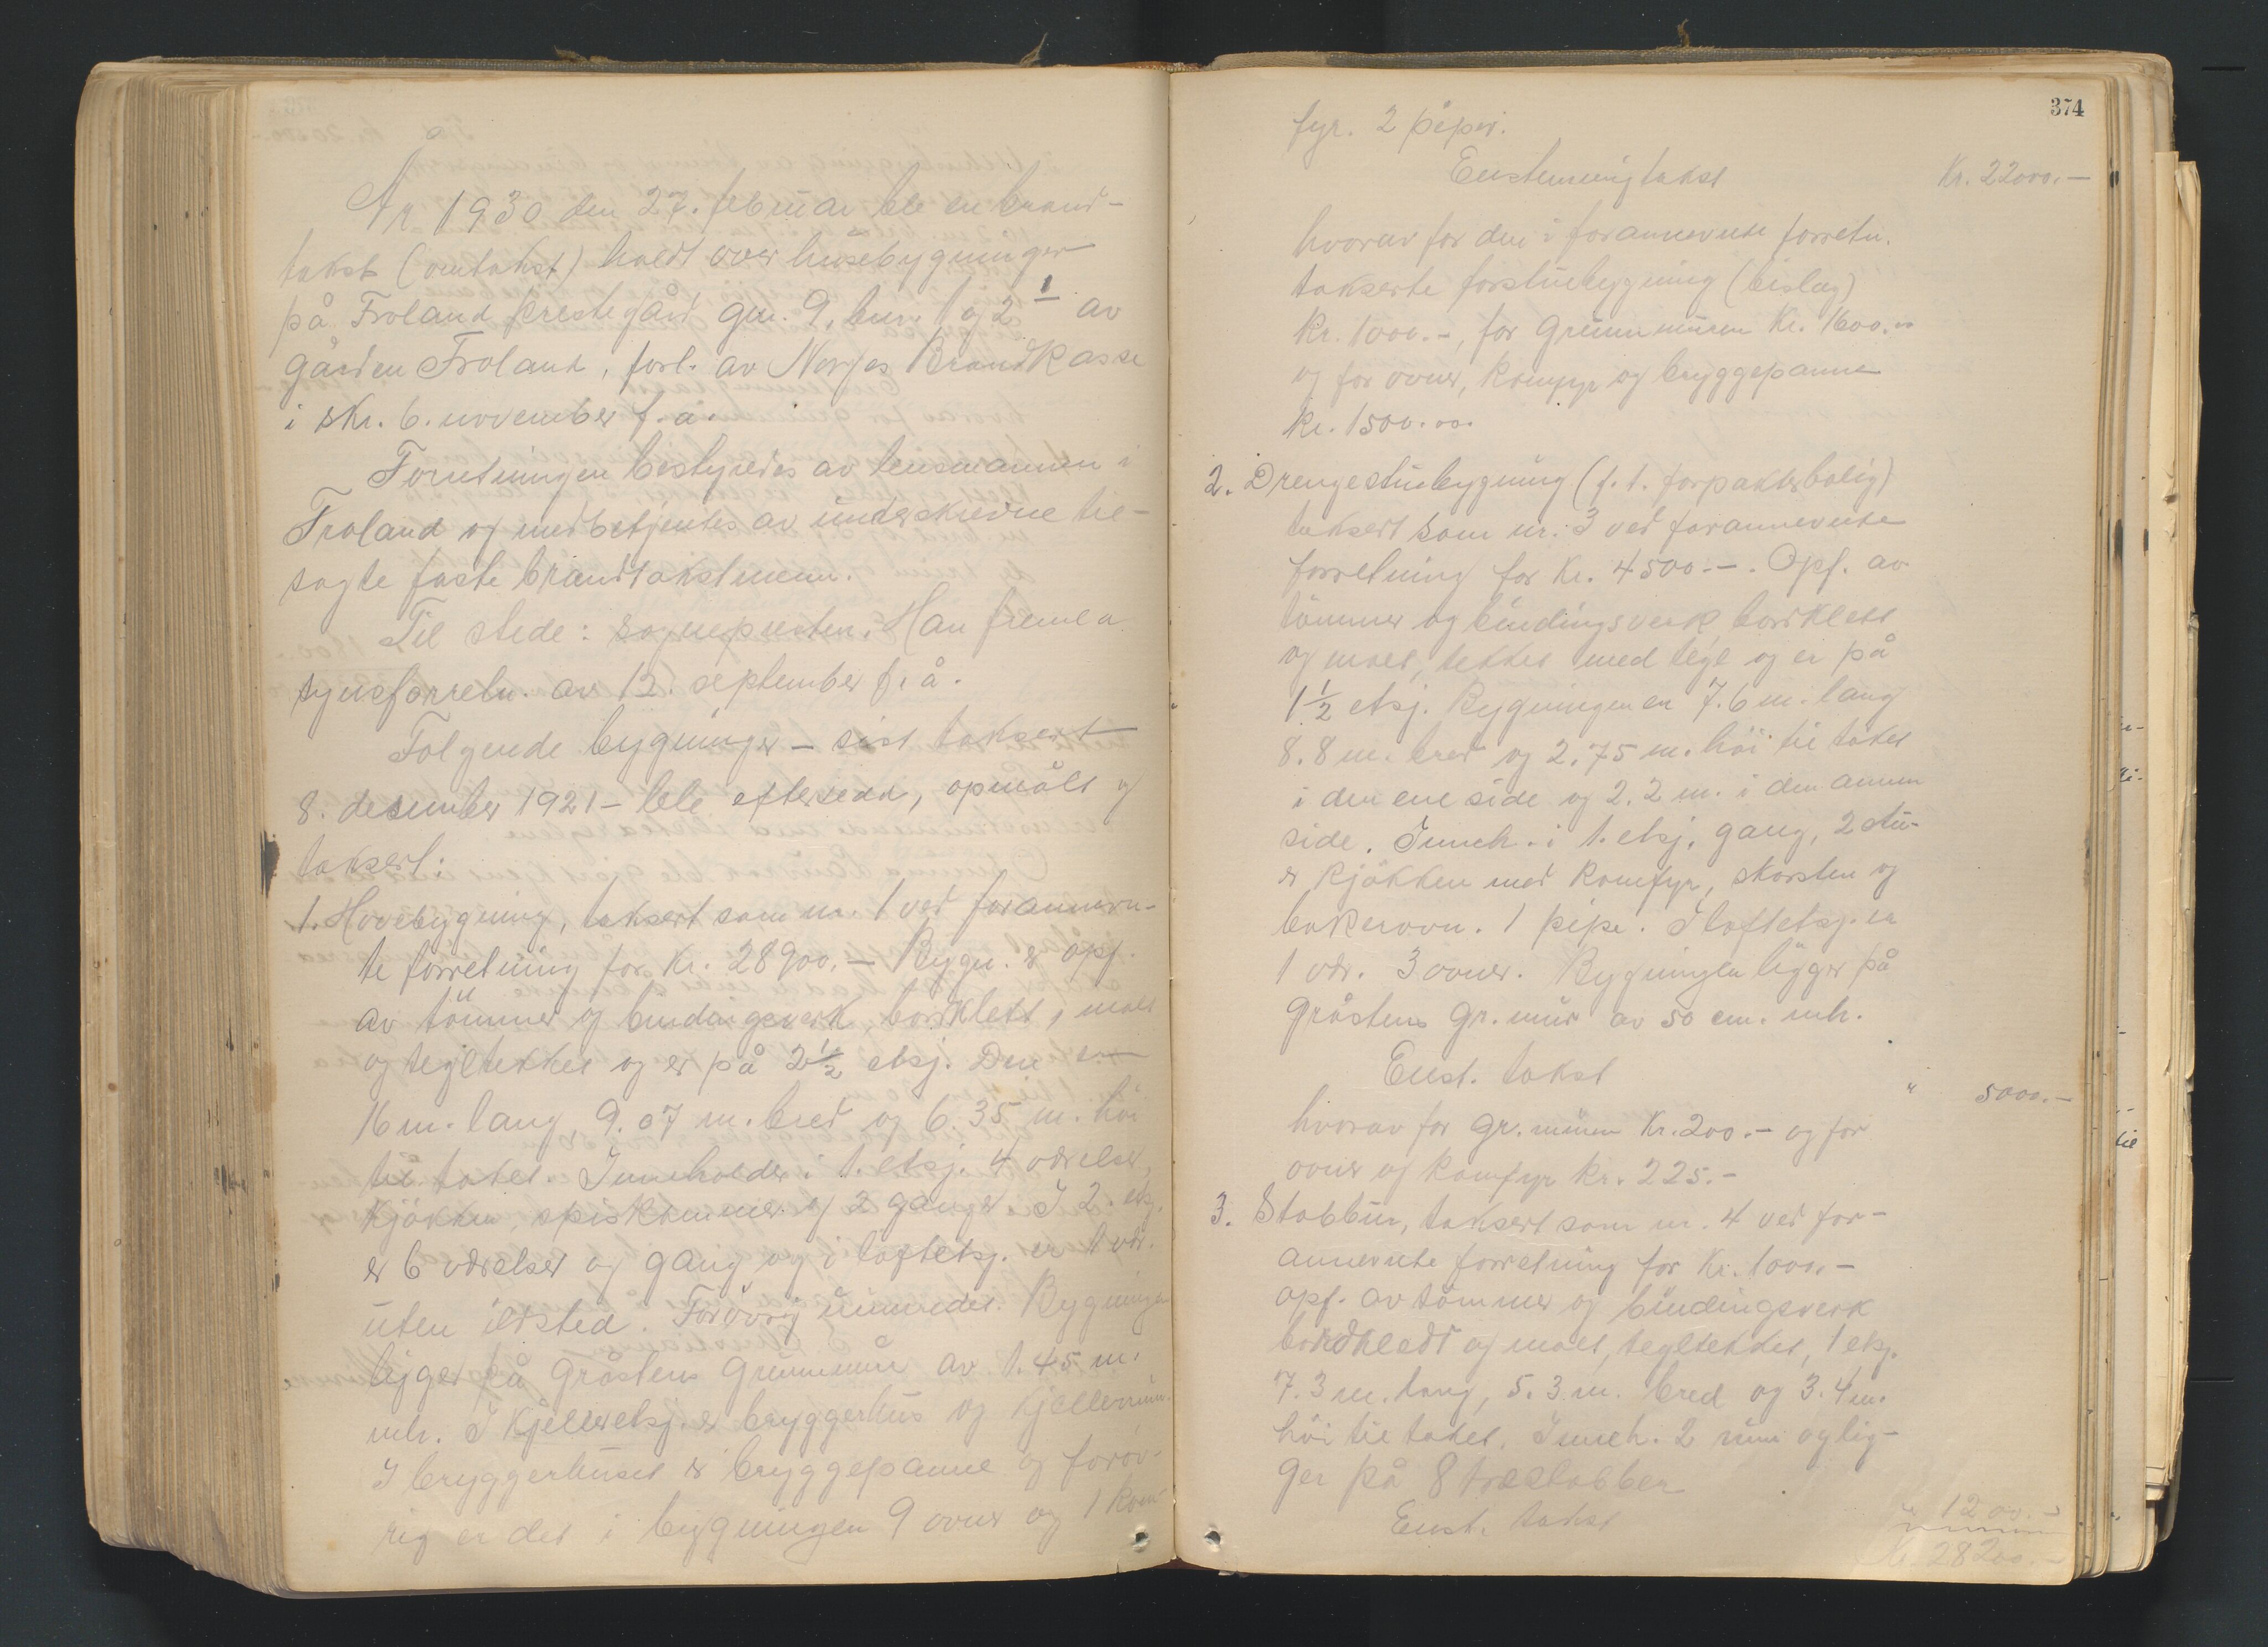 År 1930 den 27. februar ble en brand-
takst (omtakst) holdt over husebygninger
på Froland prestegård gnr. 9, bnr. 1 og 2 1 av
gården Froland, forl. av Norges Brandkasse
i skr. 6. november f. a.
Forretningen bestyredes av lensmannen i
Froland og medbetjentes av underskrevne til-
sagte faste brandtakstmenn.
Til stede: sogneprten. Han fremla
synsforretn. av 12. september f. å.
Følgende bygninger – sist taksert
8. desember 1921 – ble eftersedd, opmålt og
taksert:
1. Hovebygning, taksert som nr. 1 ved forannevn-
te forretning for kr. 28900.– Bygn. er opf.
av tömmer og bindingsverk, bordklett, malt
og tegltekket og er på 2½ etsj. Den er
16 m. lang, 9.07 m. bred og 6.35 m. höi
til taket. Inneholder i 1. etsj. 4 værelser,
kjökken, spiskammer og 2 ganger. I 2. etsj.
er 6 værelser og gang og i loftetsj. er 1 vær.
uten ildsted. Forövrig uinnredet. Bygningen
ligger på gråstens grunnmur av 1.45 m.
mh. I kjelleretsj. er bryggerhus og kjellerrum.
I bryggerhuset er bryggepanne og foröv-
rig er det i bygningen 9 ovner og 1 kom-
374
fyr. 2 piper.
Enstemmig takst Kr. 22000.–
hvorav for den i forannevnte forretn.
takserte forstuebygning (bislag)
Kr. 1000.–, for grunnmuren Kr. 1600.00
og for ovner, komfyr og bryggepanne
kr. 1500.00.
2. Drengestuebygning (f. t. forpakterbolig)
taksert som nr. 3 ved forannevnte
forretning for kr. 4500.–. Opf. av
tömmer og bindingsverk bordklett
og malt, tekket med tegl og er på
1½ etsj. Bygningen er 7.6 m. lang
8.8 m. bred og 2.75 m. höi til taket
i den ene side og 2.2 m. i den annen
side. Inneh. i 1. etsj. gang, 2 stu-
er kjökken med komfyr, skorsten og
bakerovn. 1 pipe. I loftetsj. er
1 vær. 3 ovner. Bygningen ligger på
gråstens gr. mur av 50 cm. mh.
Enst. takst " 5000.–
hvorav for gr. muren Kr. 200.– og for
ovner og komfyr kr. 225.–
3. Stabbur, taksert som nr. 4 ved for-
annevnte forretning for Kr. 1000.–
opf. av tömmer og bindingsverk
bordkledt og malt, tegltekket, 1 etsj.
7.3 m. lang, 5.3 m. bred og 3.4 m.
höi til taket. Inneh. 2 rum og lig-
ger på 8 træstabber
Enst. takst " 1200.–
Kr. 28200.–